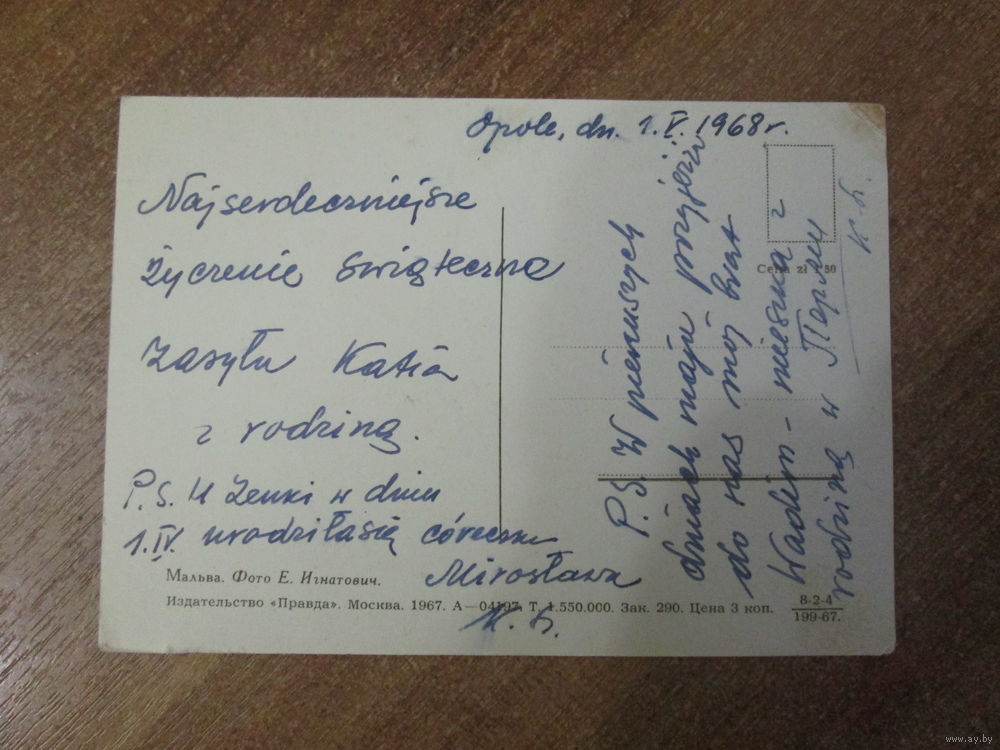 Opole, dn. 1.V.1968r.
Najserdeczniejsze
Życzenie Świąteczne
Zasyła Katia
z rodziną.
P.S. U Zenki w dniu
1.IV. urodziłasię córeczka
Mirosława
K. h.
P.S. W pierwszych
dniach maju przyjezie
do nas mój brat
Wadim - mieszka z
rodziną w Перми
Cena zł 1 50
Мальва. Фото Е. Игнатович.
Издательство «Правда». Москва. 1967. А—04197. Т. 1.550.000. Зак. 290. Цена 3 коп.
8-2-4
199-67.
www.ay.by